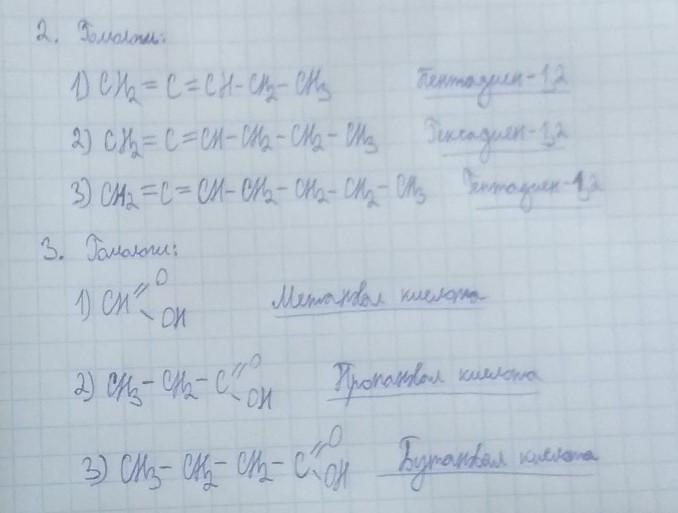 2. Гомологи:
1) CH2=C=CH-CH2-CH3 Пентадиен-1,2
2) CH2=C=CH-CH2-CH2-CH3 Гексадиен-1,2
3) CH2=C=CH-CH2-CH2-CH2-CH3 Гептадиен-1,2
3. Гомологи:
1) CH=O-OH Метановая кислота
2) CH3-CH2-C=O-OH Пропановая кислота
3) CH3-CH2-CH2-C=O-OH Бутановая кислота